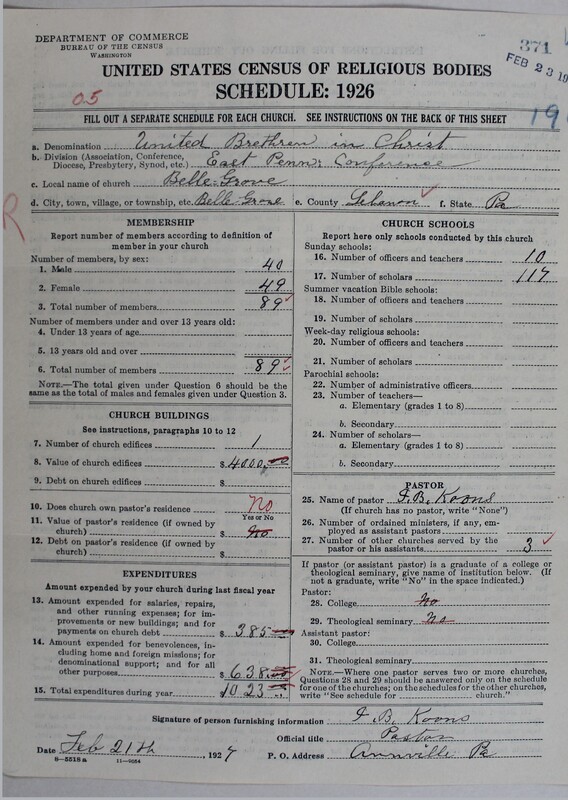 DEPARTMENT OF COMMERCE
BUREAU OF THE CENSUS
WASHINGTON
371
FEB 23 19
UNITED STATES CENSUS OF RELIGIOUS BODIES
SCHEDULE: 1926
05
FILL OUT A SEPARATE SCHEDULE FOR EACH CHURCH. SEE INSTRUCTIONS ON THE BACK OF THIS SHEET
19
a. Denomination United Brethren in Christ
b. Division (Association, Conference, Diocese, Presbytery, Synod, etc.) East Penn. Conference
c. Local name of church Belle Grove
d. City, town, village, or township, etc. Belle Grove e. County Lebanon f. State Pa
R
MEMBERSHIP
Report number of members according to definition of
member in your church
Number of members, by sex:
1. Male 40
2. Female 49
3. Total number of members 89
Number of members under and over 13 years old:
4. Under 13 years of age
5. 13 years old and over
6. Total number of members 89
NOTE.—The total given under Question 6 should be
same as the total of males and females given under Question 3.
CHURCH BUILDINGS
See instructions, paragraphs 10 to 12
7. Number of church edifices 1
8. Value of church edifices $ 4000.00
9. Debt on church edifices $
10. Does church own pastor's residence? No
Yes or No
11. Value of pastor's residence (if owned by
church) $ No
12. Debt on pastor's residence (if owned by
church) $
EXPENDITURES
Amount expended by your church during last fiscal year
13. Amount expended for salaries, repairs,
and other running expenses; for im-
provements or new buildings; and for
payments on church debt $ 385
14. Amount expended for benevolences, in-
cluding home and foreign missions; for
denominational support; and for all
other purposes $ 638.00
15. Total expenditures during year $ 1023
CHURCH SCHOOLS
Report here only schools conducted by this church
Sunday schools:
16. Number of officers and teachers 10
17. Number of scholars 117
Summer vacation Bible schools:
18. Number of officers and teachers
19. Number of scholars
Week-day religious schools:
20. Number of officers and teachers
21. Number of scholars
Parochial schools:
22. Number of administrative officers
23. Number of teachers—
a. Elementary (grades 1 to 8)
b. Secondary
24. Number of scholars—
a. Elementary (grades 1 to 8)
b. Secondary
PASTOR
25. Name of pastor I. B. Koons
(If church has no pastor, write "None")
26. Number of ordained ministers, if any, em-
ployed as assistant pastors
27. Number of other churches served by the
pastor or his assistants 3
If pastor (or assistant pastor) is a graduate of a college or
theological seminary, give name of institution below. (If
not a graduate, write "No" in the space indicated.)
Pastor:
28. College No
29. Theological seminary No
Assistant pastor:
30. College
31. Theological seminary
NOTE.—Where one pastor serves two or more churches,
Questions 28 and 29 should be answered only on the schedule
for one of the churches; on the schedules for the other churches,
write "See schedule for church."
Signature of person furnishing information I. B. Koons
Official title Pastor
Date Feb 21th, 1927 P. O. Address Annville Pa
8—5518 a 11—9054